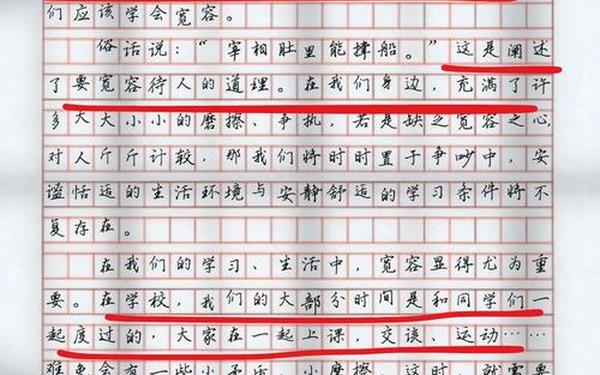 们应该学会宽容。
俗话说：“宰相肚里能撑船。”这是阐述
了要宽容待人的道理。在我们身边，充满了许
多大大小小的磨擦、争执，若是缺乏宽容之心，
对人斤斤计较，那我们将时时置于争吵中，安
谧恬适的生活环境与安静舒适的学习条件将不
复存在。
在我们的学习、生活中，宽容显得尤为重
要。在学校，我们的大部分时间是和同学们一
起度过的，大家在一起上课，交谈、运动……
难免会有一些小矛盾、小摩擦，这时，就需要